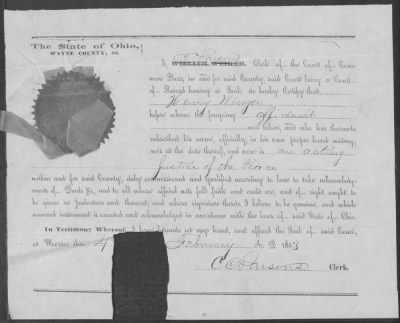 The State of Ohio,
WAYNE COUNTY, SS.
I, WILLIAM Clerk of the Court of Com-
mon Pleas, in and for said County, said Court being a Court
of Record having a Seal, do hereby Certify that
Henry
before whom the foregoing affidavit
was taken, and who has thereunto
subscribed his name, officially, in his own proper hand writing,
was at the date thereof, and now is an acting
Justice of the Peace
within and for said County, duly commissioned and qualified according to law to take acknowledg-
ments of Deeds &c, and to all whose official acts full faith and credit are, and of right ought to
be given as Judicature and thereout, and whose signature thereto I believe to be genuine, and which
annexed instrument is executed and acknowledged in accordance with the laws of said State of Ohio.
In Testimony Whereof, I set my hand, and affixed the Seal of said Court,
at Wooster this February A. D. 1863
Parsons Clerk.